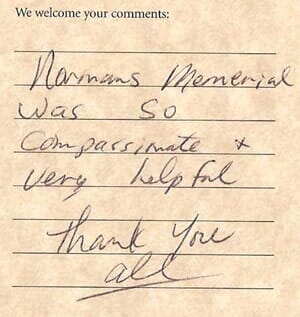 We welcome your comments:
Normans Memerial
was so
Compassimate +
very helpful
Thank You
all